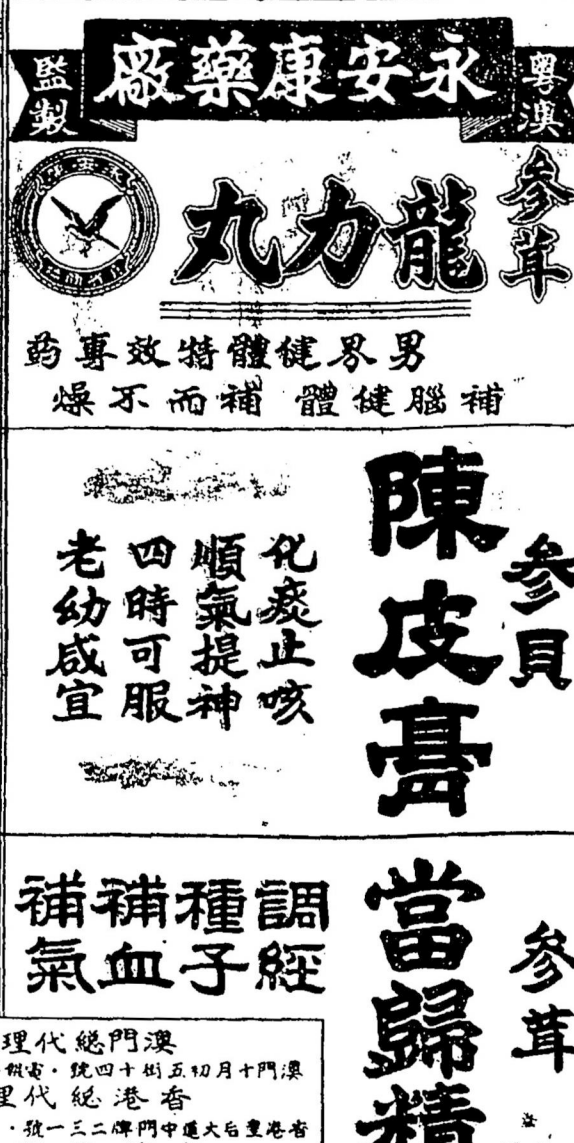 永安康藥廠
粵澳
監製
參茸
龍力丸
男界健體特效專药
補腦健體 補而不燥
參貝
陳皮膏
化痰止咳
順氣提神
四時可服
老幼咸宜
參茸
當歸精
調經
種子
補血
補氣
澳門総代理
澳門十月初五街十四號・電
香港総代理
香港皇后大道中門牌二三一號・